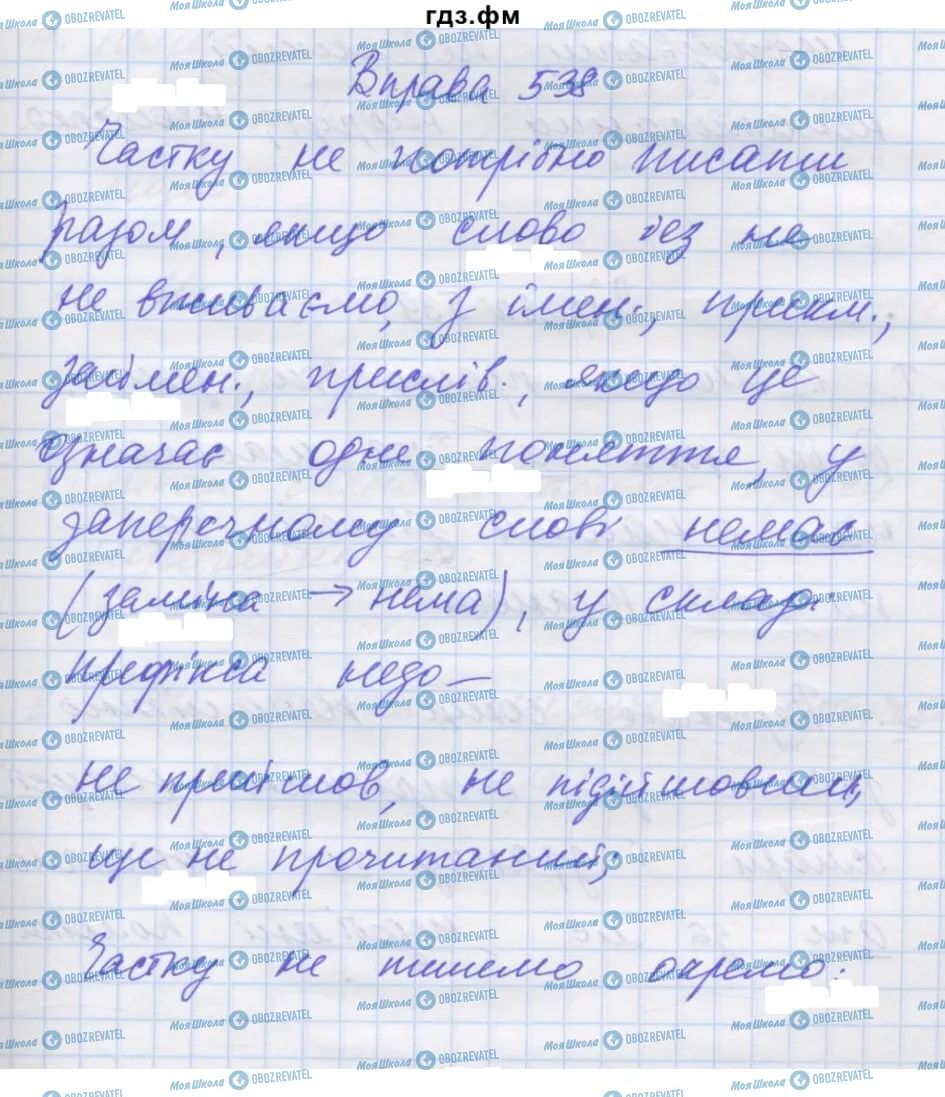 гдз.фм
Вправа 538
Частку не потрібно писати
разом, якщо слово без не
не вживаємо, з імен., прикм.,
займен., прислів., якщо це
означає одне поняття, у
заперечному слові немає
(заміна → нема), у складі
префікса недо-
не прийшов, не підійшовши,
ще не прочитаний;
Частку не пишемо окремо: